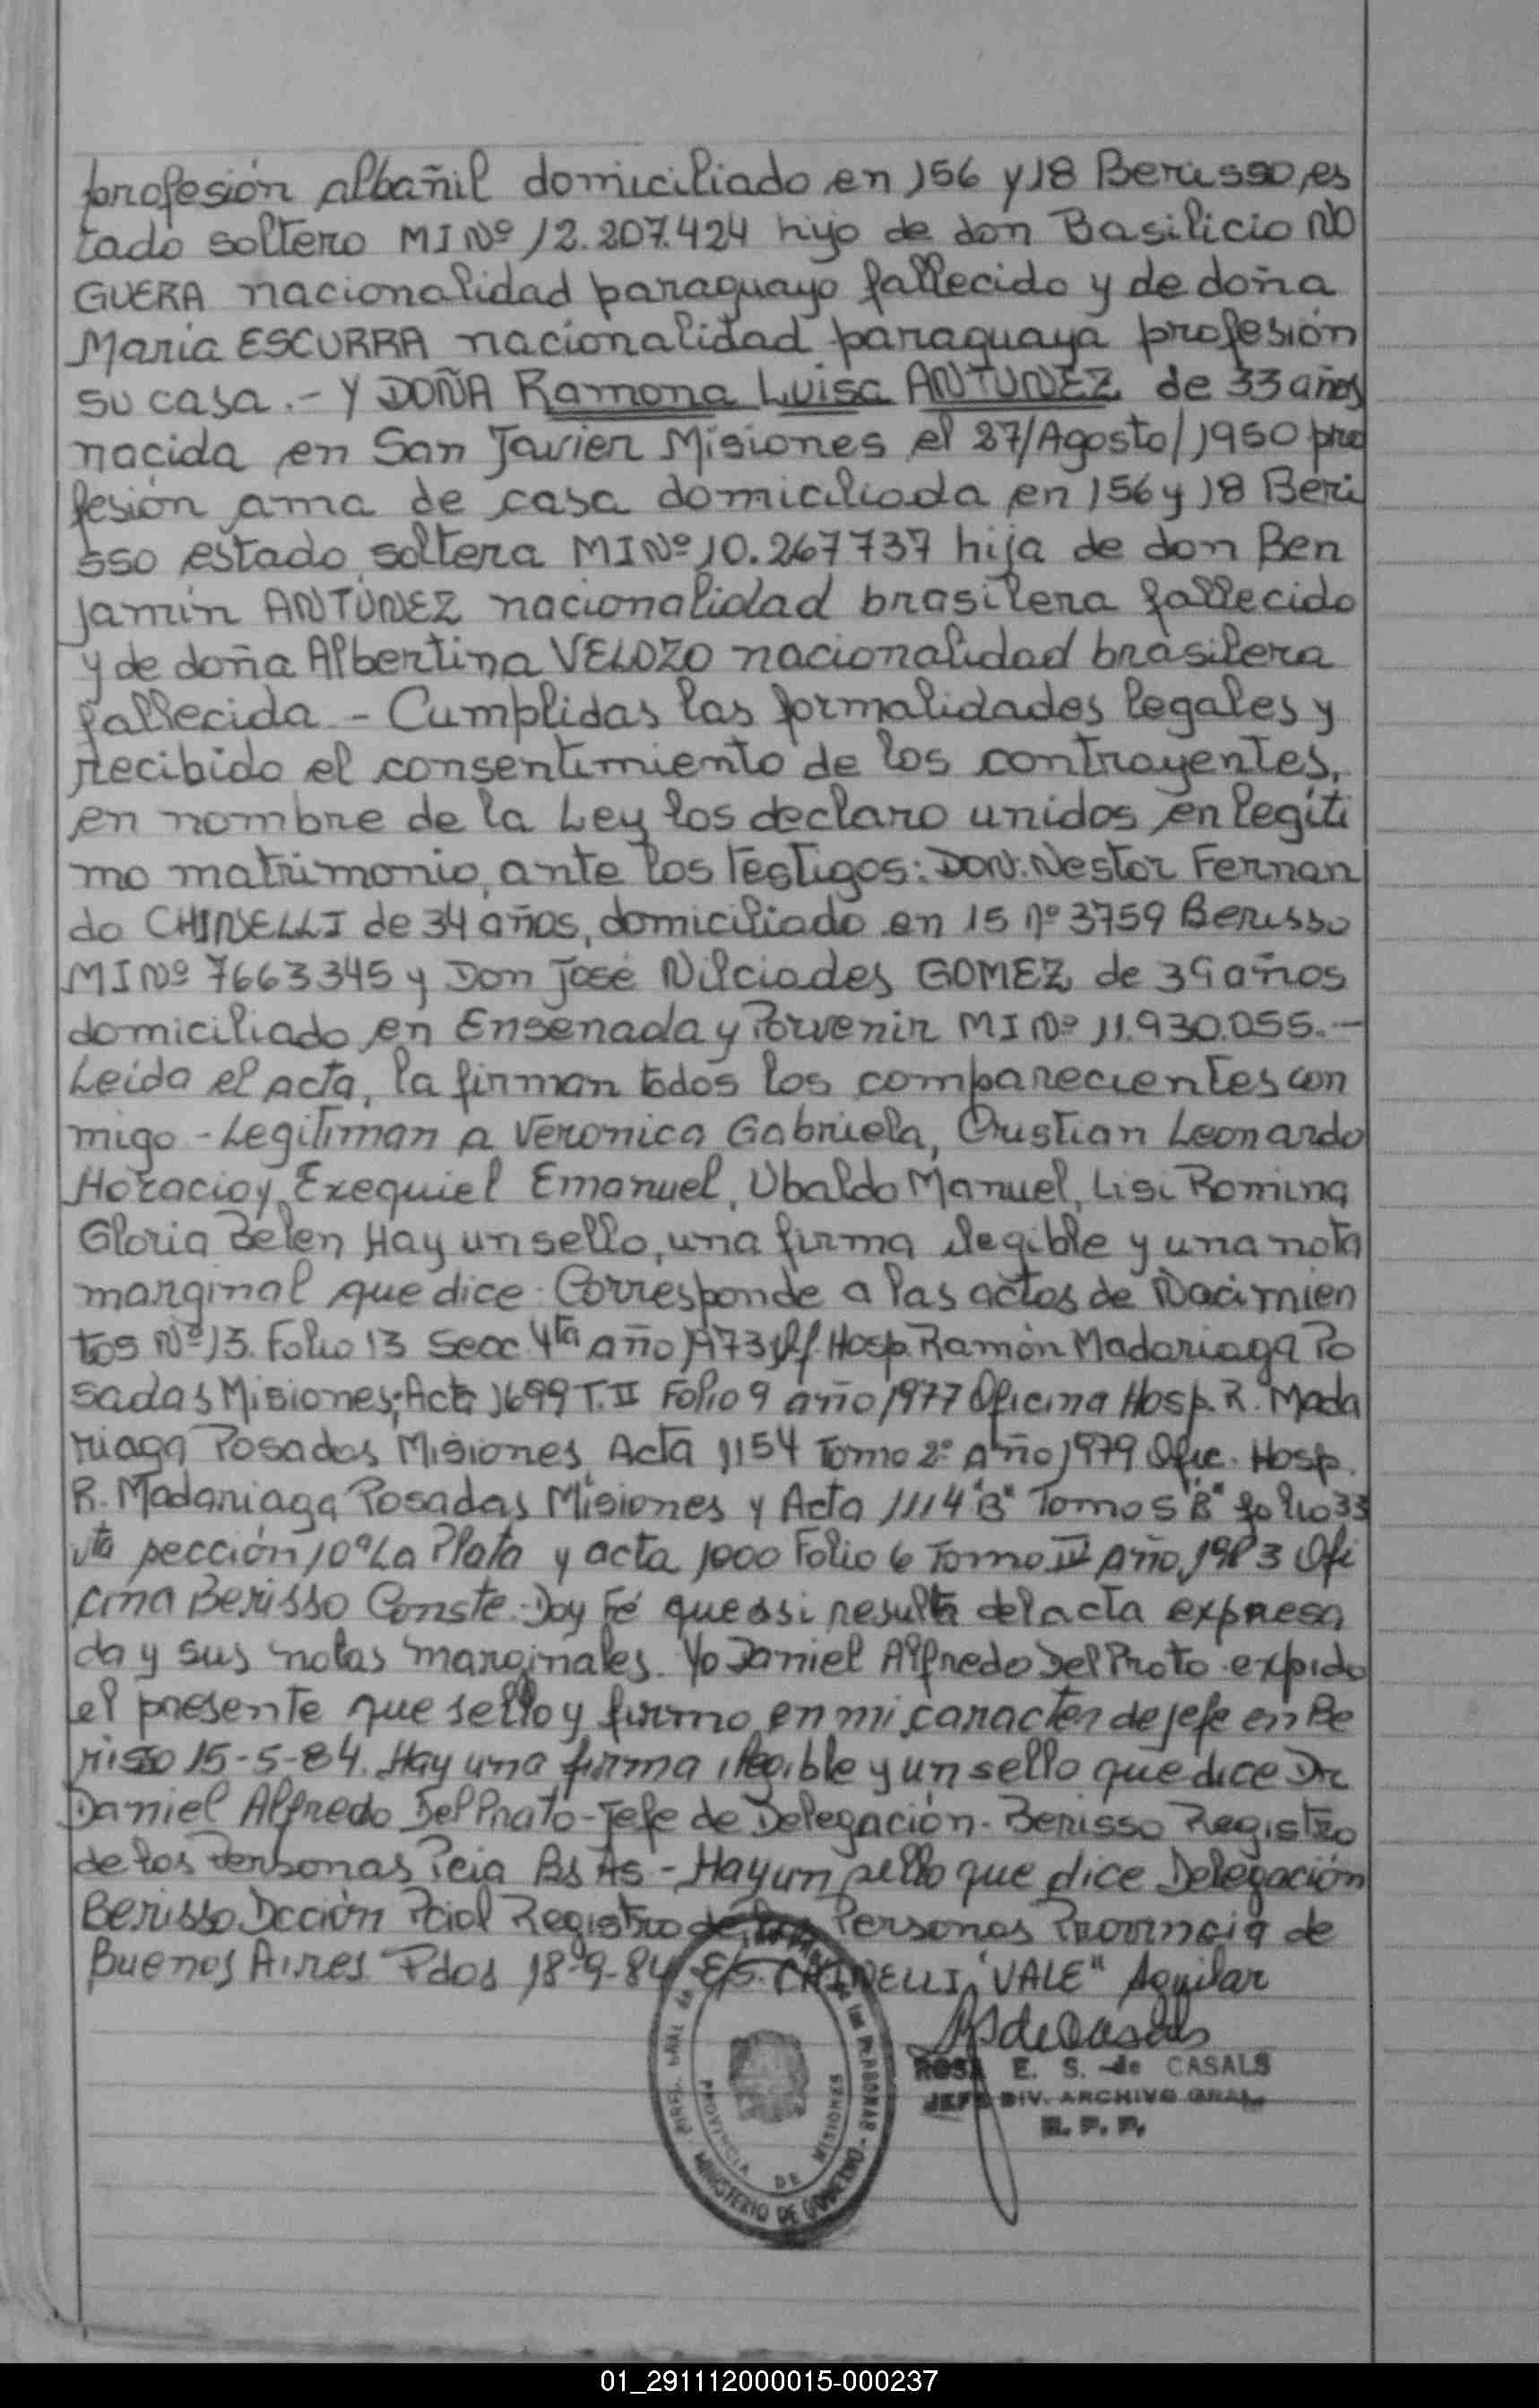 profesión albañil domiciliado en 156 y 18 Berisso, es
tado soltero MI Nº 12.207.424 hijo de don Basilicio NO
GUERA nacionalidad paraguayo fallecido y de doña
Maria ESCURRA nacionalidad paraguaya profesión
su casa.- Y DOÑA Ramona Luisa ANTUNEZ de 33 años
nacida en San Javier Misiones el 27/Agosto/1950 pro
fesión ama de casa domiciliada en 156 y 18 Beri
sso estado soltera MI Nº 10.267737 hija de don Ben
jamin ANTUNEZ nacionalidad brasilera fallecido
y de doña Albertina VELOZO nacionalidad brasilera
fallecida - Cumplidas las formalidades legales y
recibido el consentimiento de los contrayentes,
en nombre de la Ley los declaro unidos en legiti
mo matrimonio, ante los Testigos: DON: Nestor Fernan
do CHINELLI de 34 años, domiciliado en 15 nº 3759 Berisso
MI Nº 7663345 y Don José Nilciades GOMEZ de 39 años
domiciliado en Ensenada y Porvenir MI Nº 11.930.055.-
Leída el acta, la firman todos los comparecientes con
migo - Legitiman a Veronica Gabriela, Cristian Leonardo
Horacio y Exequiel Emanuel, Ubaldo Manuel, Lisi Romina
Gloria Belen Hay un sello, una firma ilegible y una nota
marginal que dice: Corresponde a las actas de Nacimien
tos Nº 13. Folio 13 Secc. 4ta año 1973 Of. Hosp. Ramón Madariaga Po
sadas Misiones; Acta 1699 T. II Folio 9 año 1977 Oficina Hosp. R. Mada
riaga Posadas Misiones Acta 1154 Tomo 2º Año 1979 Ofic. Hosp.
R. Madariaga Posadas Misiones y Acta 1114 "B" Tomo 5 "B" folio 33
vta sección 10ª La Plata y acta 1000 Folio 6 Tomo IV Año 1983 Ofi
cina Berisso Conste. Doy Fé que asi resulta del acta expresa
da y sus notas marginales. Yo Daniel Alfredo Del Prato expido
el presente que sello y firmo en mi caracter de jefe en Be
risso 15-5-84. Hay una firma ilegible y un sello que dice Dr
Daniel Alfredo Del Prato - Jefe de Delegación - Berisso Registro
de los Personas Pcia Bs As - Hay un sello que dice Delegación
Berisso Dcción Pcial Registro de las Personas Provincia de
Buenos Aires Pdos 18-9-84 E/S. CHINELLI "VALE" Aguilar
ROSA E. S. de CASALS
JEFE DIV. ARCHIVO GRAL.
R. P. P.
PROVINCIA DE MISIONES
MINISTERIO DE GOBIERNO
01_291112000015-000237